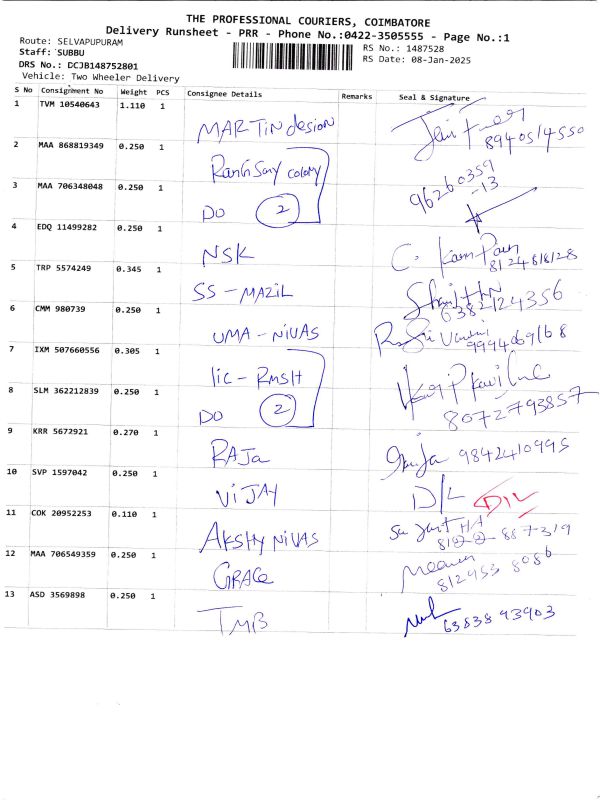 THE PROFESSIONAL COURIERS, COIMBATORE
Delivery Runsheet - PRR - Phone No.:0422-3505555 - Page No.:1
Route: SELVAPUPURAM
RS No.: 1487528
Staff: SUBBU
RS Date: 08-Jan-2025
DRS No.: DCJB148752801
Vehicle: Two Wheeler Delivery
S No Consignment No Weight PCS Consignee Details Remarks Seal & Signature
1 TVM 10540643 1.110 1 MARTIN design 8940514550
2 MAA 868819349 0.250 1 colony 96260359
-13
3 MAA 706348048 0.250 1 DO 2
4 EDQ 11499282 0.250 1 NSK C. 8124818128
5 TRP 5574249 0.345 1 SS - MAZIL 6382124356
6 CMM 980739 0.250 1 UMA - NIVAS 9994069168
7 IXM 507660556 0.305 1 lic -
8 SLM 362212839 0.250 1 DO 2 8072793857
9 KRR 5672921 0.270 1 RAJA 9842410995
10 SVP 1597042 0.250 1 VIJAY D/L D/L
11 COK 20952253 0.110 1 AKSHY NIVAS
12 MAA 706549359 0.250 1 GRACE 812953 8086
13 ASD 3569898 0.250 1 TMB 63838 93903